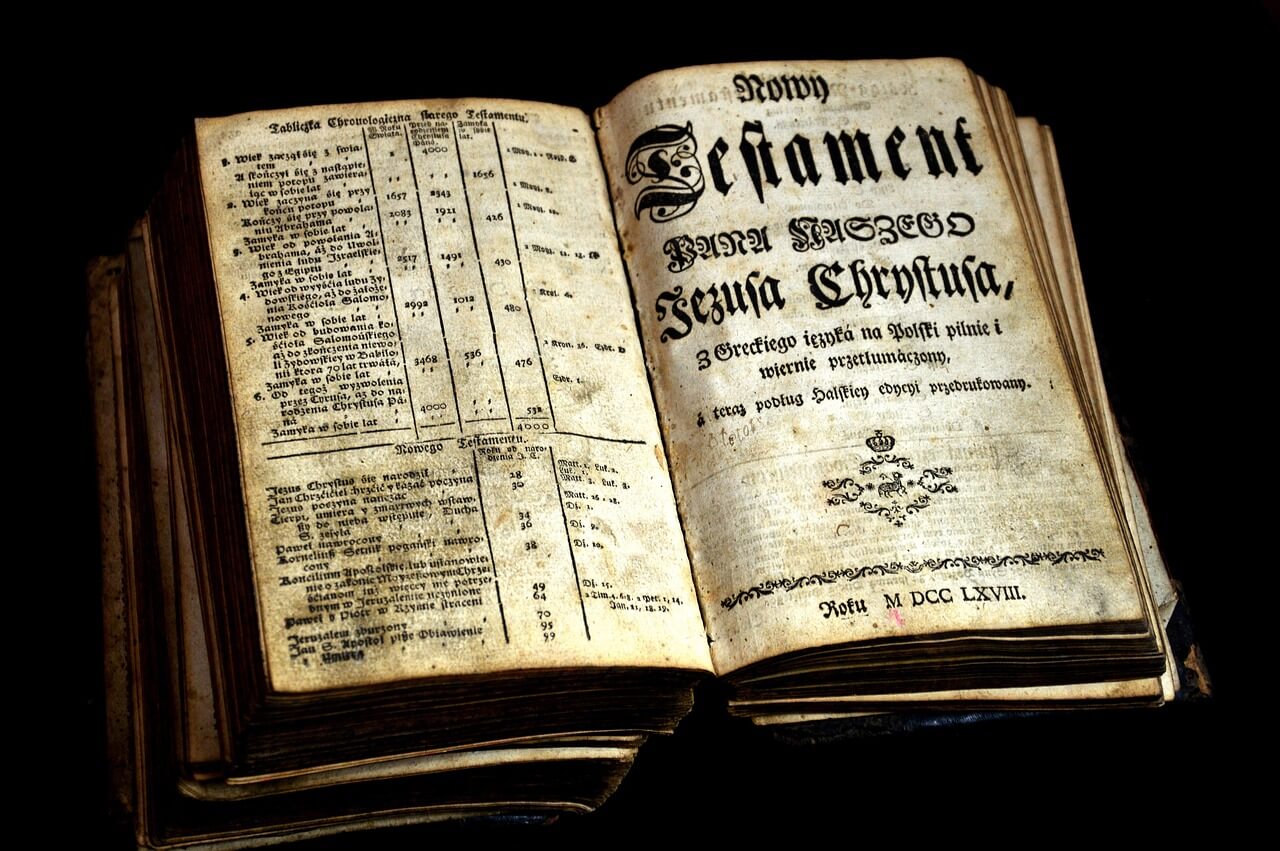 Tabliczka Chronologiczna starego Testamentu.
W Roku Swiata. | Przed narodzeniem Chrystusa Pana. | Zamyka w sobie lat.
1. Wiek zaczął się z światem 4000 1 Moy. 1
A skończył się z nastąpieniem potopu zawieraiąc w sobie lat 1656
2. Wiek zaczyna się przy końcu potopu 1657 2343
Kończy się przy powołaniu Abrahama 2083 1921
Zamyka w sobie lat 426
3. Wiek od powołania Abrahama, aż do Uwolnienia ludu Izraelskiego z Egiptu 2517 1491
Zamyka w sobie lat 430
4. Wiek od wyyścia ludu Żydowskiego, aż do założenia Kościoła Salomonowego 2992 1012
Zamyka w sobie lat 480
5. Wiek od budowania kościoła Salomońskiego aż do zkończenia niewoli Żydowskiey w Babilonii ktora 70 lat trwała, 3468 536
Zamyka w sobie lat 476
6. Od tegoż wyzwolenia przez Cyrusa, aż do narodzenia Chrystusa Pana 4000
Zamyka w sobie lat 532
4000
Nowego Testamentu.
Roku od narodzenia J. C.
Jezus Chrystus się narodził Matt. 1. Luk. 2.
Jan Chrzciciel chrzcić y kazać poczyna 28
Jezus poczyna nauczać 30
Cierpi, umiera y zmartwych wstawszy do nieba wstępuie, Ducha S. zsyła 34
Paweł nawrocony 36 Dz. 9.
Korneliusz Setnik pogański nawrocony 38 Dz. 10.
Koncilium Apostolskie, lub ustanowienie o zakonie Moyżeszowym Chrześcianom już więcey nie potrzebnym w Jeruzalemie uczynione 49 Dz. 15.
Paweł y Piotr w Rzymie straceni 64
Jeruzalem zburzony 70
Jan S. Apostoł pisze Obiawienie 95
y umiera 99
Nowy
Testament
PANA NASZEGO
Jezusa Chrystusa,
Z Greckiego ięzyká na Polski pilnie i
wiernie przetłumáczony,
á teraz podług Halskiey edycyi przedrukowany.
Roku M DCC LXVIII.